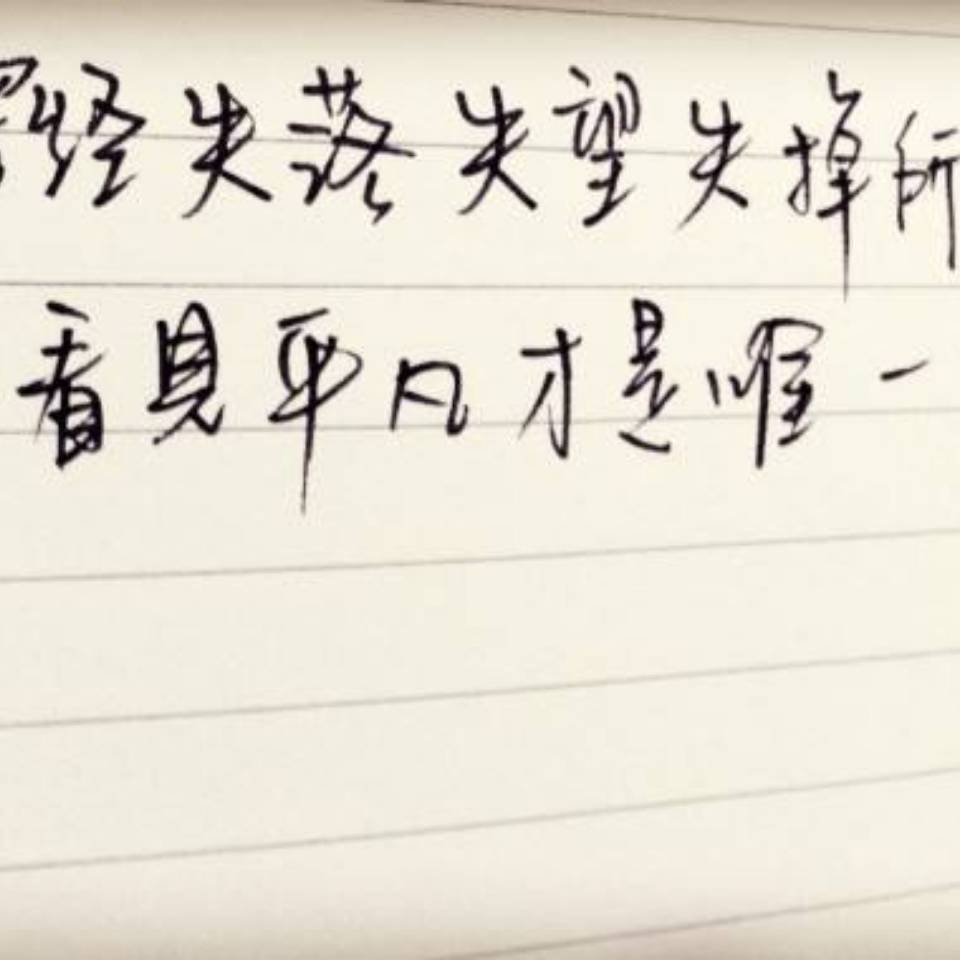 经失落失望失掉所
看見平凡才是唯一